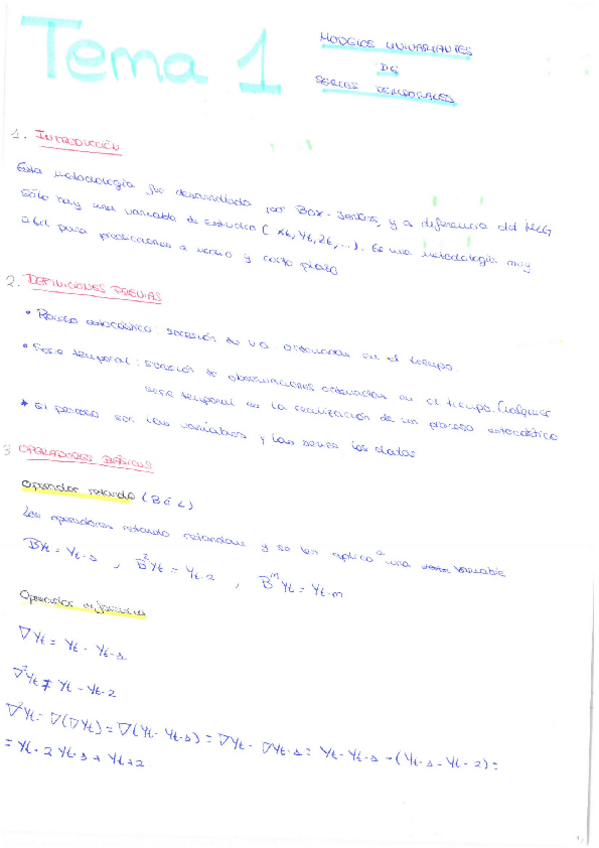 Tema 1
MODELOS UNIVARIANTES
DE
SERIES TEMPORALES
1. INTRODUCCIÓN
Esta metodología fue desarrollada por Box-Jenkins, y a diferencia del MLG
Sólo hay una variable de estudio (Xt, Yt, Zt, ...). Es una metodología muy
útil para predicciones a medio y corto plazo
2. DEFINICIONES PREVIAS
• Proceso estocástico: sucesión de V.a. ordenadas en el tiempo.
• Serie temporal: sucesión de observaciones ordenadas en el tiempo. Cualquier
serie temporal es la realización de un proceso estocástico
* El proceso son las variables y las series los datos
3 OPERADORES BÁSICOS
Operador retardo (B ó L)
Los operadores retardo retardan y se les aplica a una variable
BYt = Yt-1 , B²Yt = Yt-2 , BᵐYt = Yt-m
Operador diferencia
∇Yt = Yt - Yt-1
∇²Yt ≠ Yt - Yt-2
∇²Yt = ∇(∇Yt) = ∇(Yt - Yt-1) = ∇Yt - ∇Yt-1 = Yt - Yt-1 - (Yt-1 - Yt-2) =
= Yt - 2Yt-1 + Yt+2